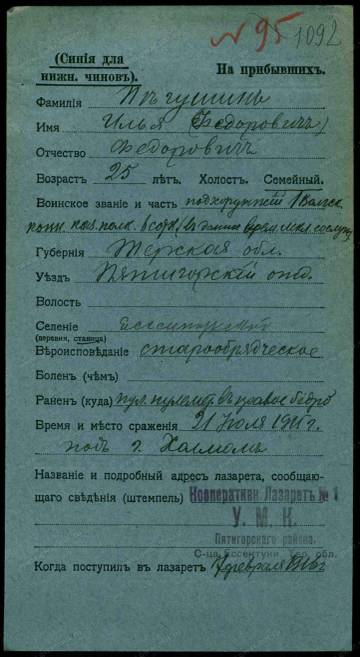 № 95 1092
(Синія для
нижн. чиновъ).
На прибывшихъ.
Фамилія Пѣгушинъ
Имя Илья (Федоровичъ)
Отчество Федоровичъ
Возрастъ 25 лѣтъ. Холост. Семейный.
Воинское званіе и часть подхорунжій 1 Волгск.
полк. 6 сотн.
Губернія Терская обл.
Уѣздъ Пятигорскій отд.
Волость
Селеніе Ессентукской
(деревня, станица)
Вѣроисповѣданіе старообрядческое
Боленъ (чѣмъ)
Раненъ (куда) пул. пулемет. въ правое бедро
Время и мѣсто сраженія 21 Іюля 1915 г.
подъ г. Холмомъ
Названіе и подробный адресъ лазарета, сообщаю-
щаго свѣдѣнія (штемпель) Кооперативн. Лазаретъ № 1
У. М. К.
Пятигорскаго района.
С-ца Ессентуки, Тер. обл.
Когда поступилъ въ лазаретъ 7 февраля 1916 г